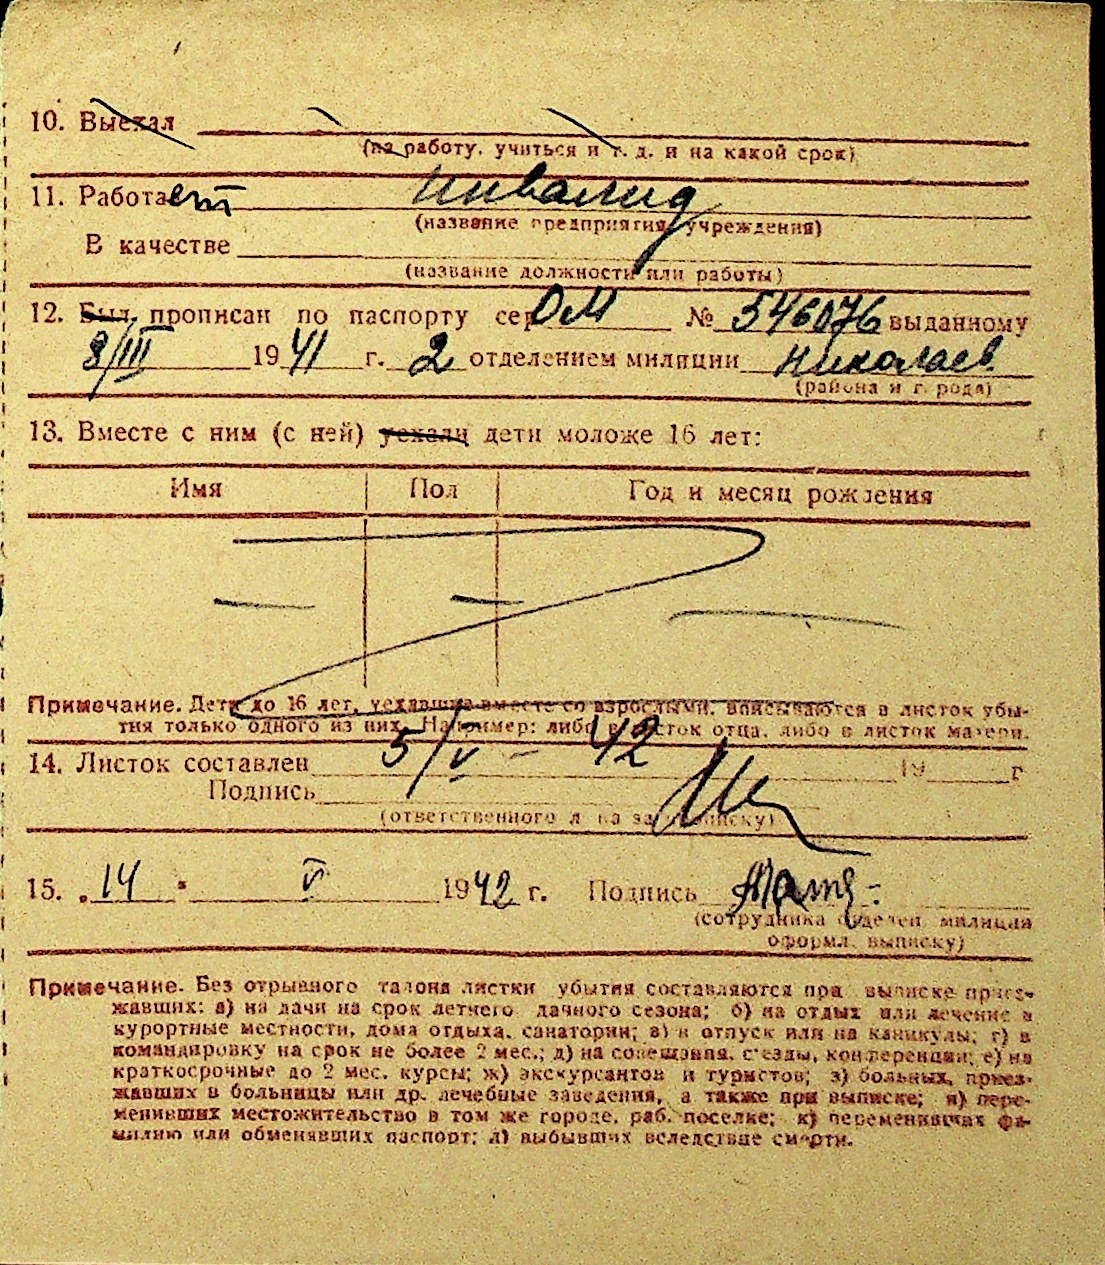 10. Выехал
(на работу, учиться и т. д. и на какой срок)
11. Работает инвалид
(название предприятия, учреждения)
В качестве
(название должности или работы)
12. Был прописан по паспорту сер. ОМ № 546076 выданному
8/III 1941 г. 2 отделением милиции Николаев.
(района и города)
13. Вместе с ним (с ней) уехали дети моложе 16 лет:
Имя Пол Год и месяц рождения
Примечание. Дети до 16 лет, уехавшие вместе со взрослыми, вписываются в листок убы-
тия только одного из них. Например: либо в листок отца, либо в листок матери.
14. Листок составлен 5/V – 42 19 г
Подпись
(ответственного л на за прописку)
15. „14 " V 1942 г. Подпись
(сотрудника отделен. милиции
оформл. выписку)
Примечание. Без отрывного талона листки убытия составляются при выписке приез-
жавших: а) на дачи на срок летнего дачного сезона; б) на отдых или лечение в
курортные местности, дома отдыха, санатории; в) в отпуск или на каникулы; г) в
командировку на срок не более 2 мес.; д) на совещания, съезды, конференции; е) на
краткосрочные до 2 мес. курсы; ж) экскурсантов и туристов; з) больных, приез-
жавших в больницы или др. лечебные заведения, а также при выписке; и) пере-
менивших местожительство в том же городе, раб. поселке; к) переменивших фа-
милию или обменявших паспорт; л) выбывших вследствие смерти.